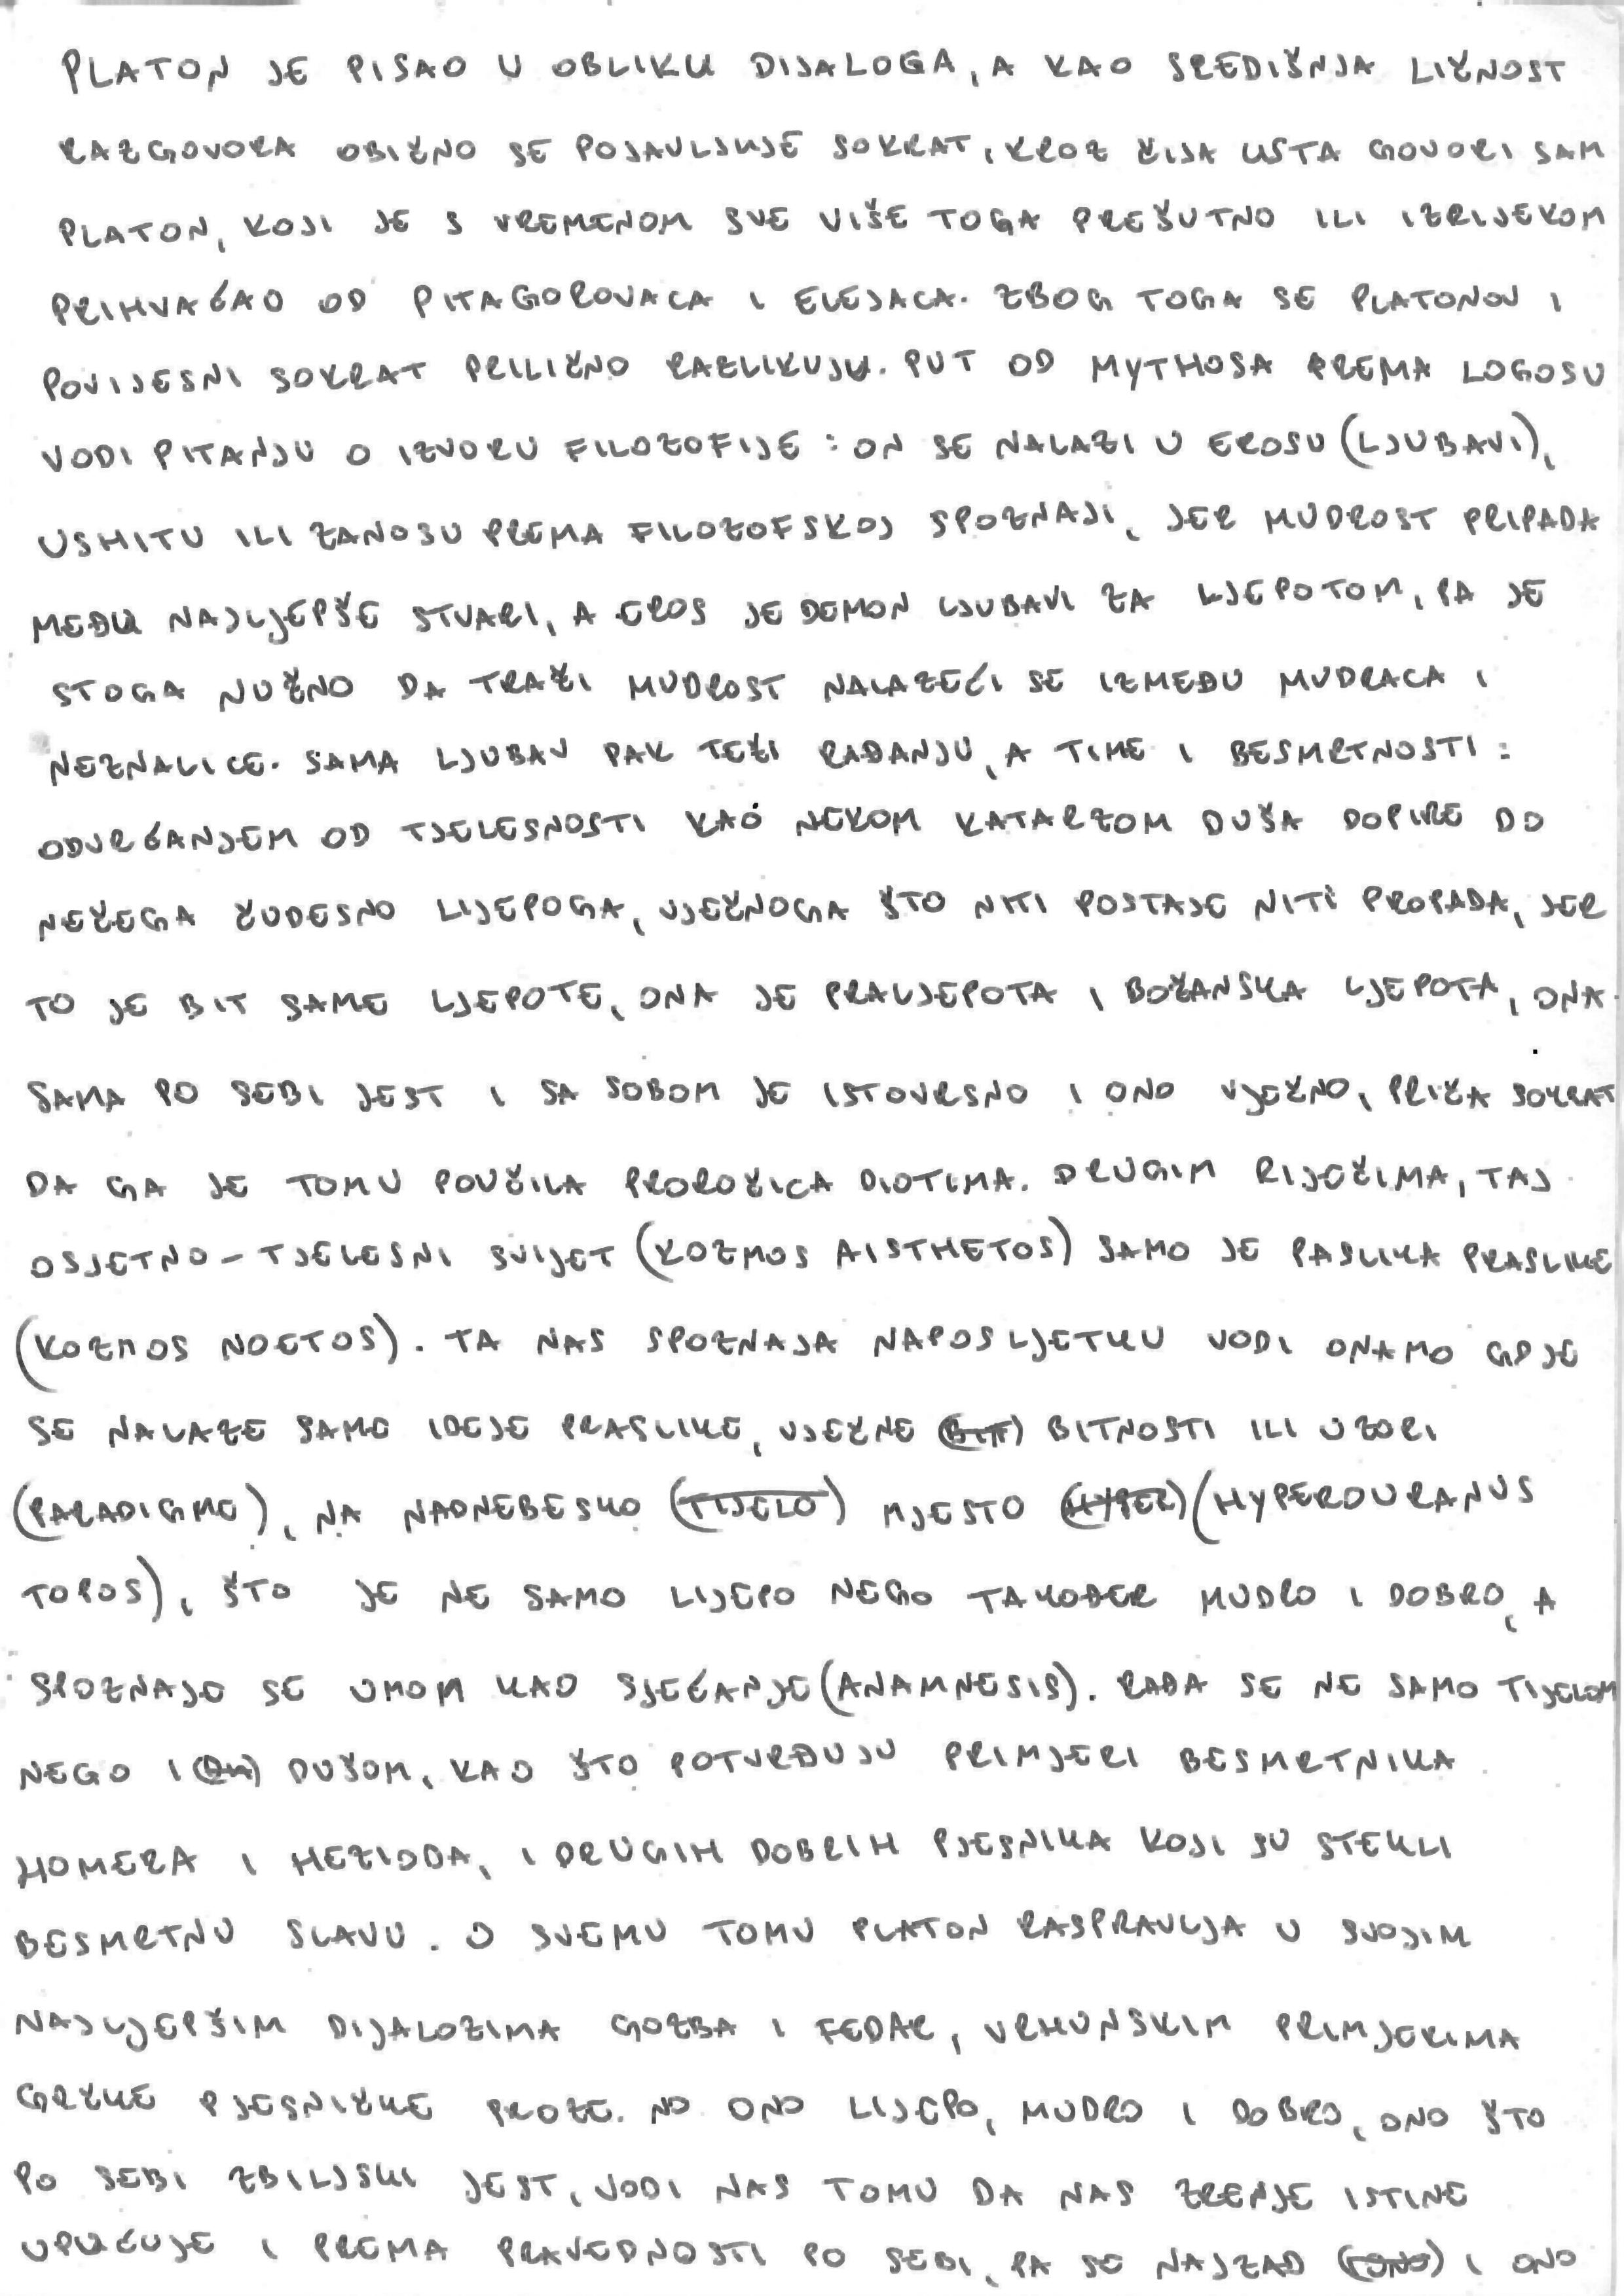 PLATON JE PISAO U OBLIKU DIJALOGA, A KAO SREDIŠNJA LIČNOST
RAZGOVORA OBIČNO SE POJAVLJUJE SOKRAT, KROZ ČIJA USTA GOVORI SAM
PLATON, KOJI JE S VREMENOM SVE VIŠE TOGA PREŠUTNO ILI IZRIJEKOM
PRIHVAĆAO OD PITAGOROVACA I ELEJACA. ZBOG TOGA SE PLATONOV I
POVIJESNI SOKRAT PRILIČNO RAZLIKUJU. PUT OD MYTHOSA PREMA LOGOSU
VODI PITANJU O IZVORU FILOZOFIJE: ON SE NALAZI U EROSU (LJUBAVI),
USHITU ILI ZANOSU PREMA FILOZOFSKOJ SPOZNAJI, JER MUDROST PRIPADA
MEĐU NAJLJEPŠE STVARI, A EROS JE DEMON LJUBAVI ZA LJEPOTOM, PA JE
STOGA NUŽNO DA TRAŽI MUDROST NALAZEĆI SE IZMEĐU MUDRACA I
NEZNALICE. SAMA LJUBAV PAK TEŽI RAĐANJU, A TIME I BESMRTNOSTI:
ODVRĆANJEM OD TJELESNOSTI KAO NEKOM KATARZOM DUŠA DOPIRE DO
NEČEGA ČUDESNO LIJEPOGA, VJEČNOGA ŠTO NITI POSTAJE NITI PROPADA, JER
TO JE BIT SAME LJEPOTE, ONA JE PRALJEPOTA I BOŽANSKA LJEPOTA, ONA
SAMA PO SEBI JEST I SA SOBOM JE ISTOVRSNO I ONO VJEČNO, PRIČA SOKRAT
DA GA JE TOMU POUČILA PROROČICA DIOTIMA. DRUGIM RIJEČIMA, TAJ
OSJETNO-TJELESNI SVIJET (KOZMOS AISTHETOS) SAMO JE PASLIKA PRASLIKE
(KOZMOS NOETOS). TA NAS SPOZNAJA NAPOSLJETKU VODI ONAMO GDJE
SE NALAZE SAME IDEJE PRASLIKE, VJEČNE (BIT) BITNOSTI ILI UZORI
(PARADIGME), NA NADNEBESKO (TIJELO) MJESTO (HYPER) (HYPEROURANUS
TOPOS), ŠTO JE NE SAMO LIJEPO NEGO TAKOĐER MUDRO I DOBRO, A
SPOZNAJE SE UMOM KAO SJEĆANJE (ANAMNESIS). RAĐA SE NE SAMO TIJELOM
NEGO I DUŠOM, KAO ŠTO POTVRĐUJU PRIMJERI BESMRTNIKA
HOMERA I HEZIODA, I DRUGIH DOBRIH PJESNIKA KOJI SU STEKLI
BESMRTNU SLAVU. O SVEMU TOMU PLATON RASPRAVLJA U SVOJIM
NAJLJEPŠIM DIJALOZIMA GOZBA I FEDAR, VRHUNSKIM PRIMJERIMA
GRČKE PJESNIČKE PROZE. NO ONO LIJEPO, MUDRO I DOBRO, ONO ŠTO
PO SEBI ZBILJSKI JEST, VODI NAS TOMU DA NAS ZRENJE ISTINE
UPUĆUJE I PREMA PRAVEDNOSTI PO SEBI, PA SE NAJZAD I ONO